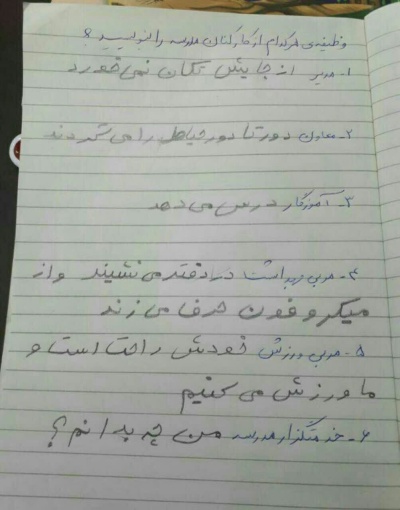 وظیفه‌ی هرکدام از کارکنان مدرسه را بنویسید؟
۱- مدیر از جایش تکان نمی‌خورد
۲- معاون دور تا دور حیاط را می‌گردند
۳- آموزگار درس می‌دهد
۴- مربی بهداشت در دفتر می‌نشیند و از
میکروفون حرف می‌زند
۵- مربی ورزش خودش راحت است و
ما ورزش می‌کنیم
۶- خدمتگزار مدرسه من چه بدانم؟